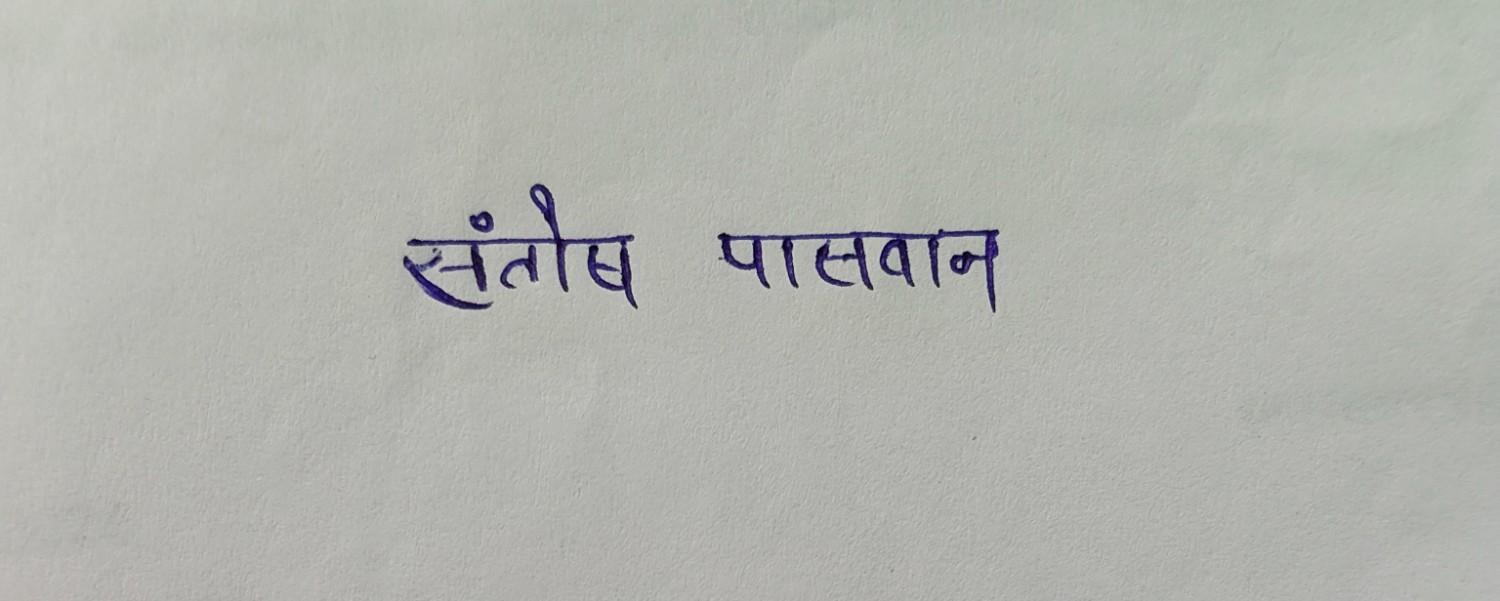 संतोष पासवान